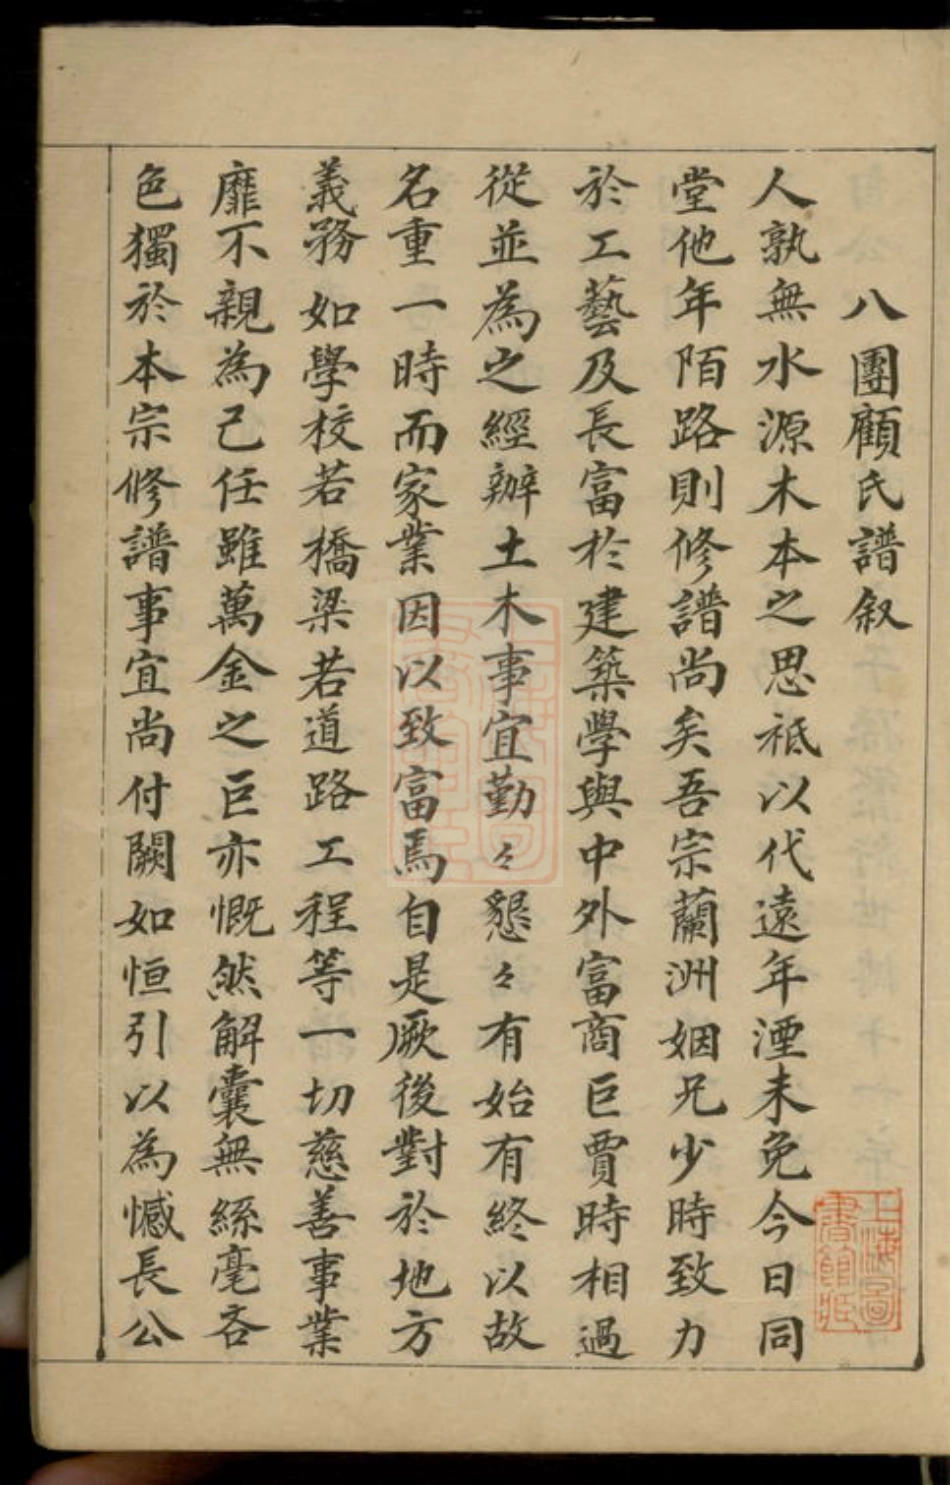 八團顧氏譜叙
人孰無水源木本之思祇以代遠年湮未免今日同
堂他年陌路則修譜尚矣吾宗蘭洲姻兄少時致力
於工藝及長富於建築學與中外富商巨賈時相過
從並為之經辦土木事宜勤々懇々有始有終以故
名重一時而家業因以致富焉自是厥後對於地方
義務如學校若橋梁若道路工程等一切慈善事業
靡不親為己任雖萬金之巨亦慨然解囊無絲毫吝
色獨於本宗修譜事宜尚付闕如恒引以為憾長公
上海圖
書館藏